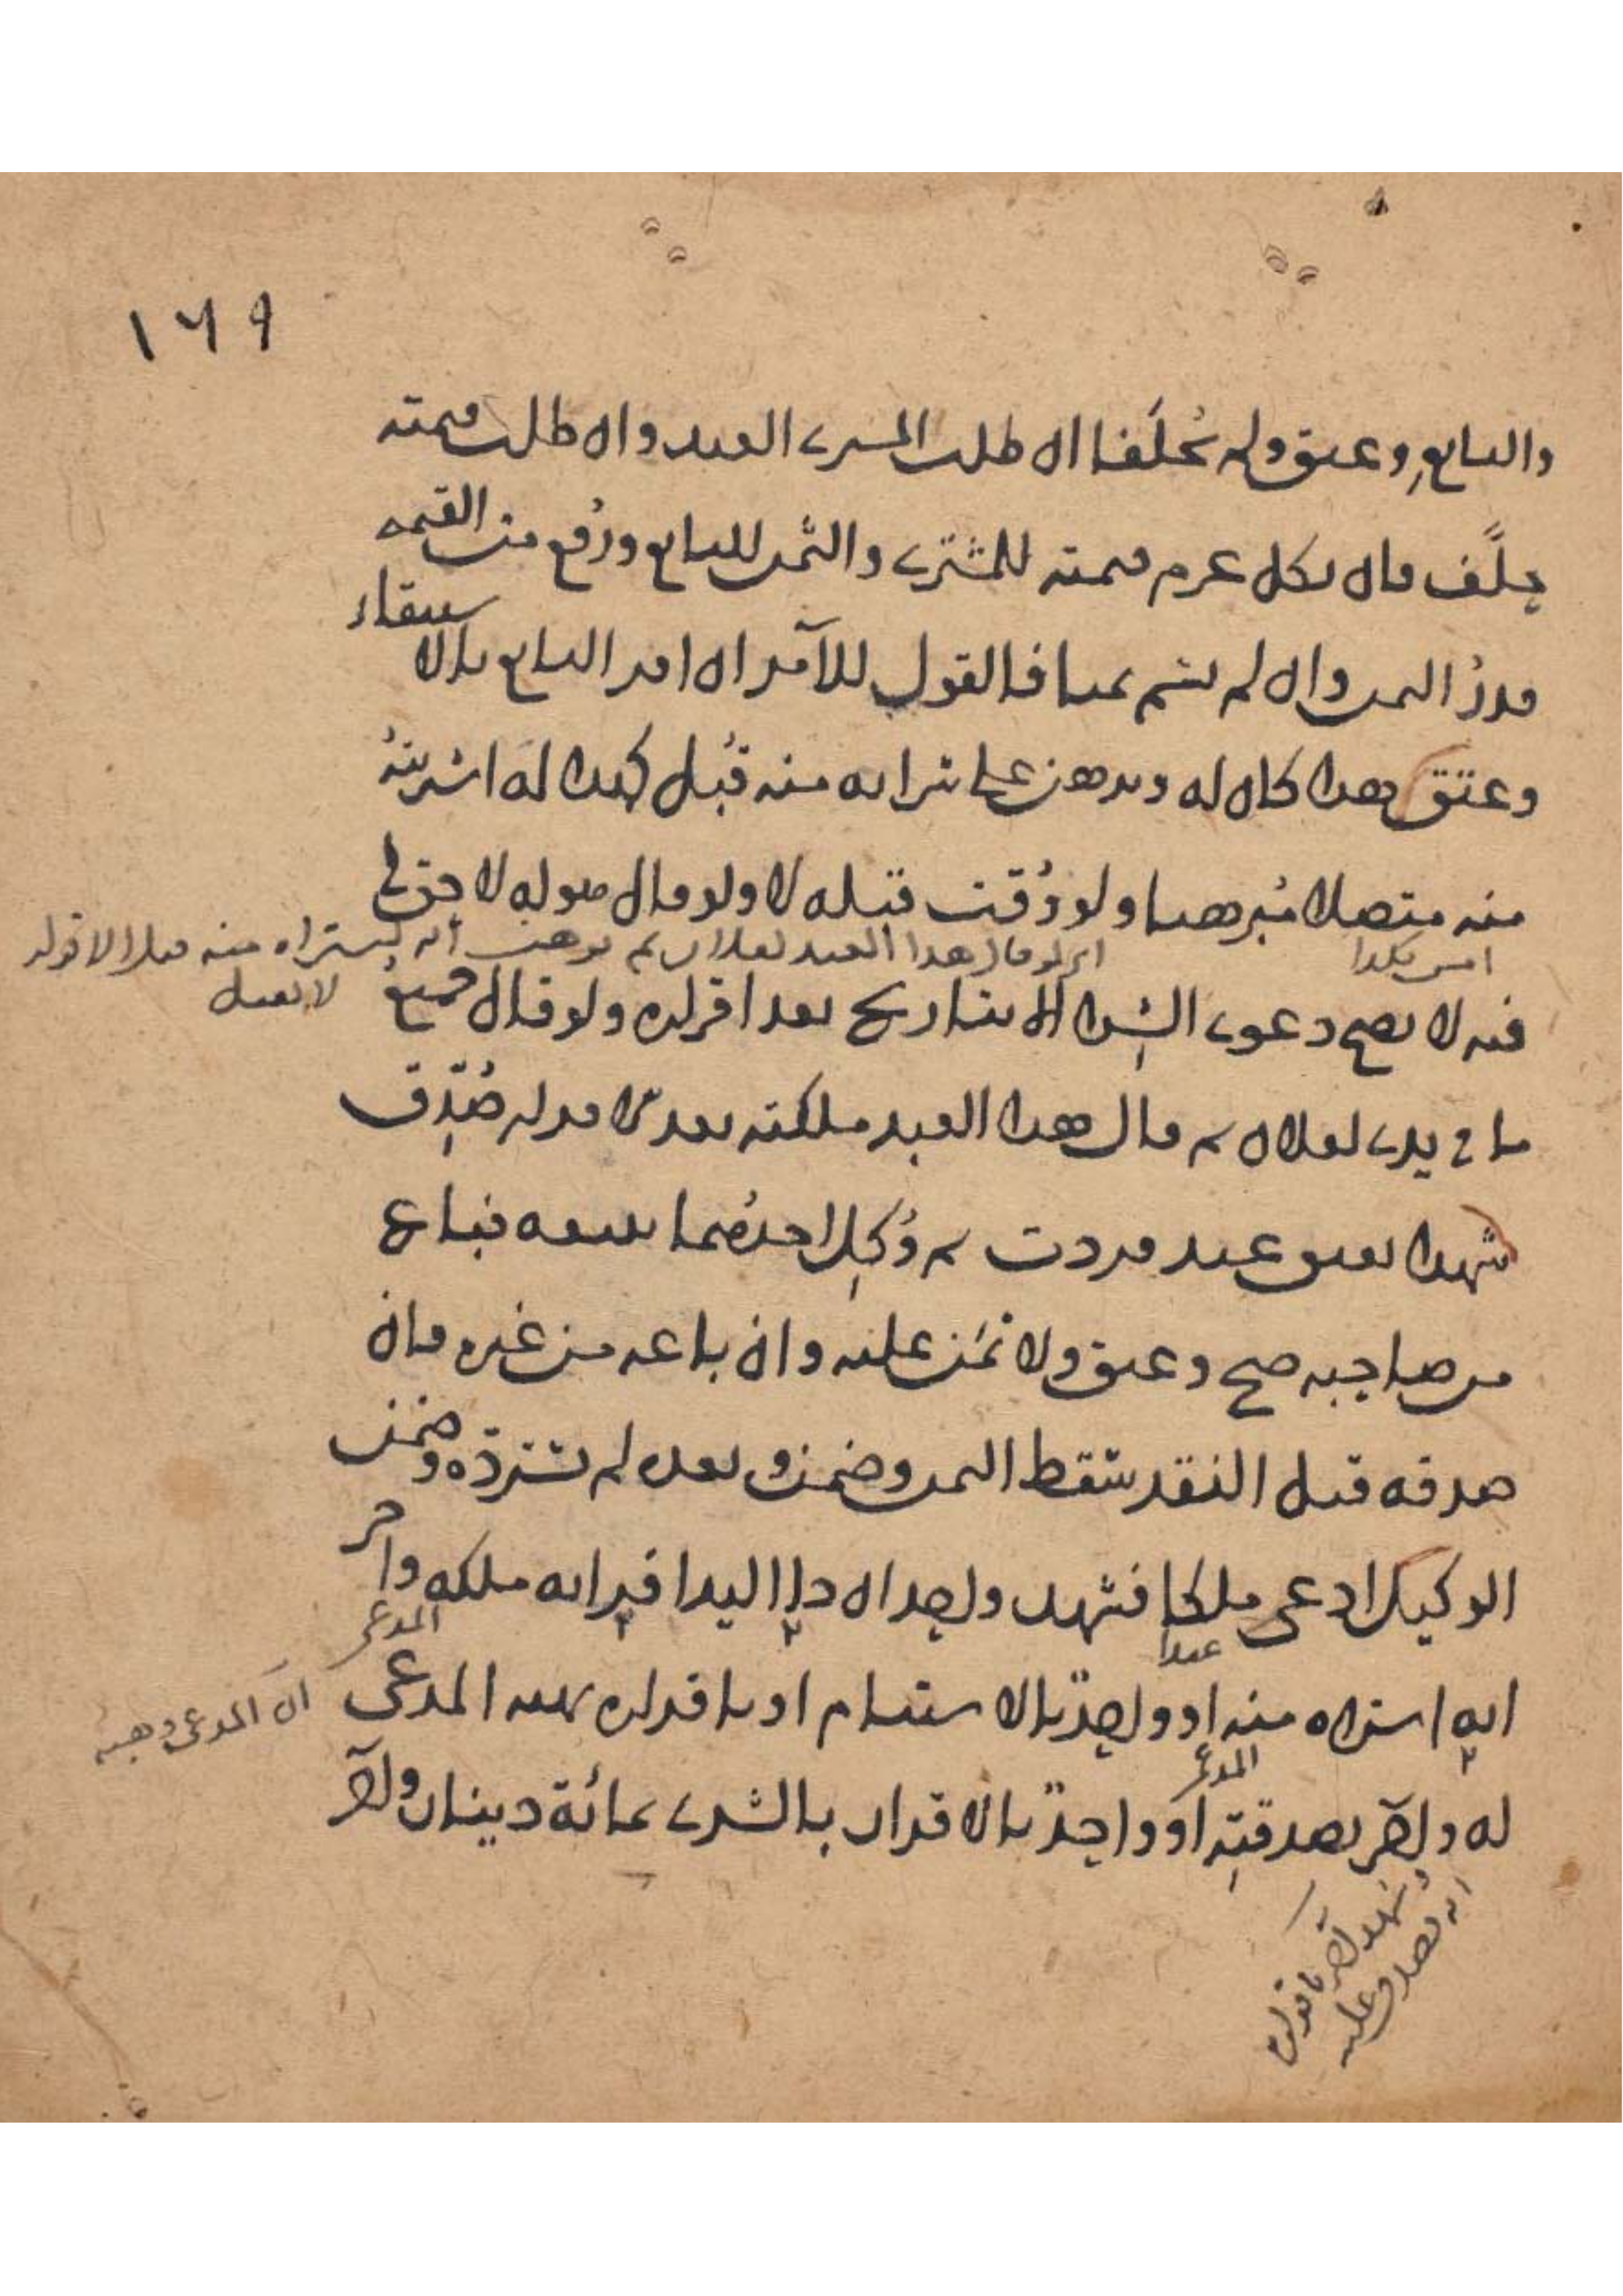 ١٦٩
والبايع وعتق ولم يحلفا ان طلب المشتري العبد وان طلب قيمته
حلّف فان نكل غرم قيمته للمشتري والثمن للبايع ورُفع من القيمة
قدرُ الثمن وان لم يسم ثمنا فالقول للآمر ان امر البايع بالاستيفاء
وعتق هذا كان له وبرهن على شرائه منه قُبل كهذا له اشتريتُه
امس بكذا
منه متصلا مُبرهنا ولو وُقت قبله لا ولو قال لا حق لي
اي لو قال هذا العبد لفلان ثم برهن انه اشتراه منه قبل الاقرار لا يقبل
فيه لا يصح دعوى الشراء الا بتاريخ بعد اقراره ولو قال جميع
ما في يدي لفلان ثم قال هذا العبد ملكته بعد الاقرار صُدّق
شهدا بعتق عبد فردت ثم وُكل احدهما ببيعه فباع
من صاحبه صح وعتق ولا ثمن عليه وان باعه من غيره فان
صدقه قبل النقد سقط الثمن وضمن وبعده لم يسترده وضمن
الوكيل ادعى ملكا فشهد واحد ان ذا اليد اقر انه ملكه واخر
عبدا
المدعي
انه اشتراه منه او واحد بالاستيام او باقراره بهبة المدعي
ان المدعي وهبه
المدعي
له واخر بصدقته او واحد بالاقرار بالشرى بمائة دينار واخر
وشهد اخر باقراره
انه تصدق عليه